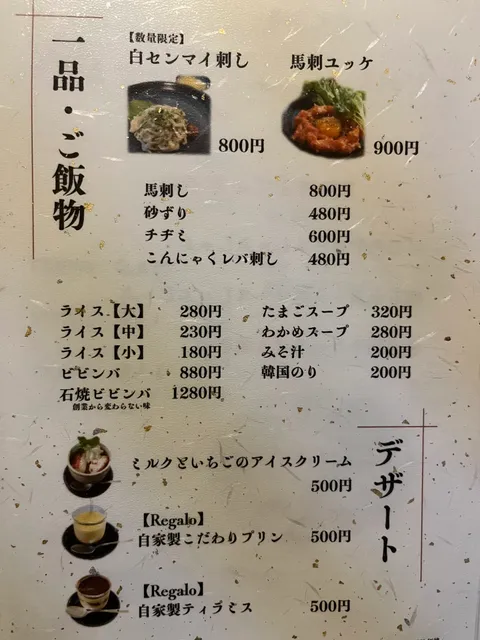 一品・ご飯物
【数量限定】
白センマイ刺し
800円
馬刺ユッケ
900円
馬刺し 800円
砂ずり 480円
チヂミ 600円
こんにゃくレバ刺し 480円
ライス【大】 280円
ライス【中】 230円
ライス【小】 180円
ビビンバ 880円
石焼ビビンバ 1280円
創業から変わらない味
たまごスープ 320円
わかめスープ 280円
みそ汁 200円
韓国のり 200円
デザート
ミルクといちごのアイスクリーム
500円
【Regalo】
自家製こだわりプリン 500円
【Regalo】
自家製ティラミス 500円